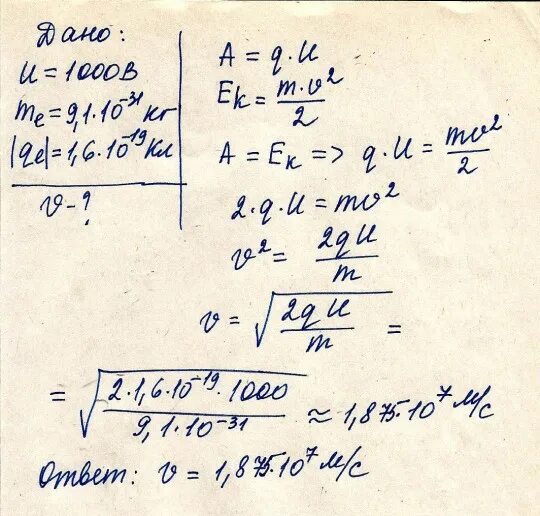 Дано:
U = 1000В
mₑ = 9,1·10⁻³¹ кг
|qₑ| = 1,6·10⁻¹⁹ Кл
v - ?
A = q·U
Eₖ = m·v²/2
A = Eₖ => q·U = mv²/2
2·q·U = mv²
v² = 2qU/m
v = √(2qU/m) =
= √(2·1,6·10⁻¹⁹·1000/9,1·10⁻³¹) ≈ 1,875·10⁷ м/с
Ответ: v = 1,875·10⁷ м/с